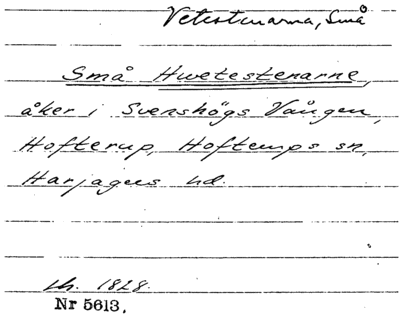 Vetestenarna, Små
Små Hwetestenarne,
åker i Svenshögs Vången,
Hofterup, Hofterups sn,
Harjagers hd.
lh. 1828.
Nr 5613.